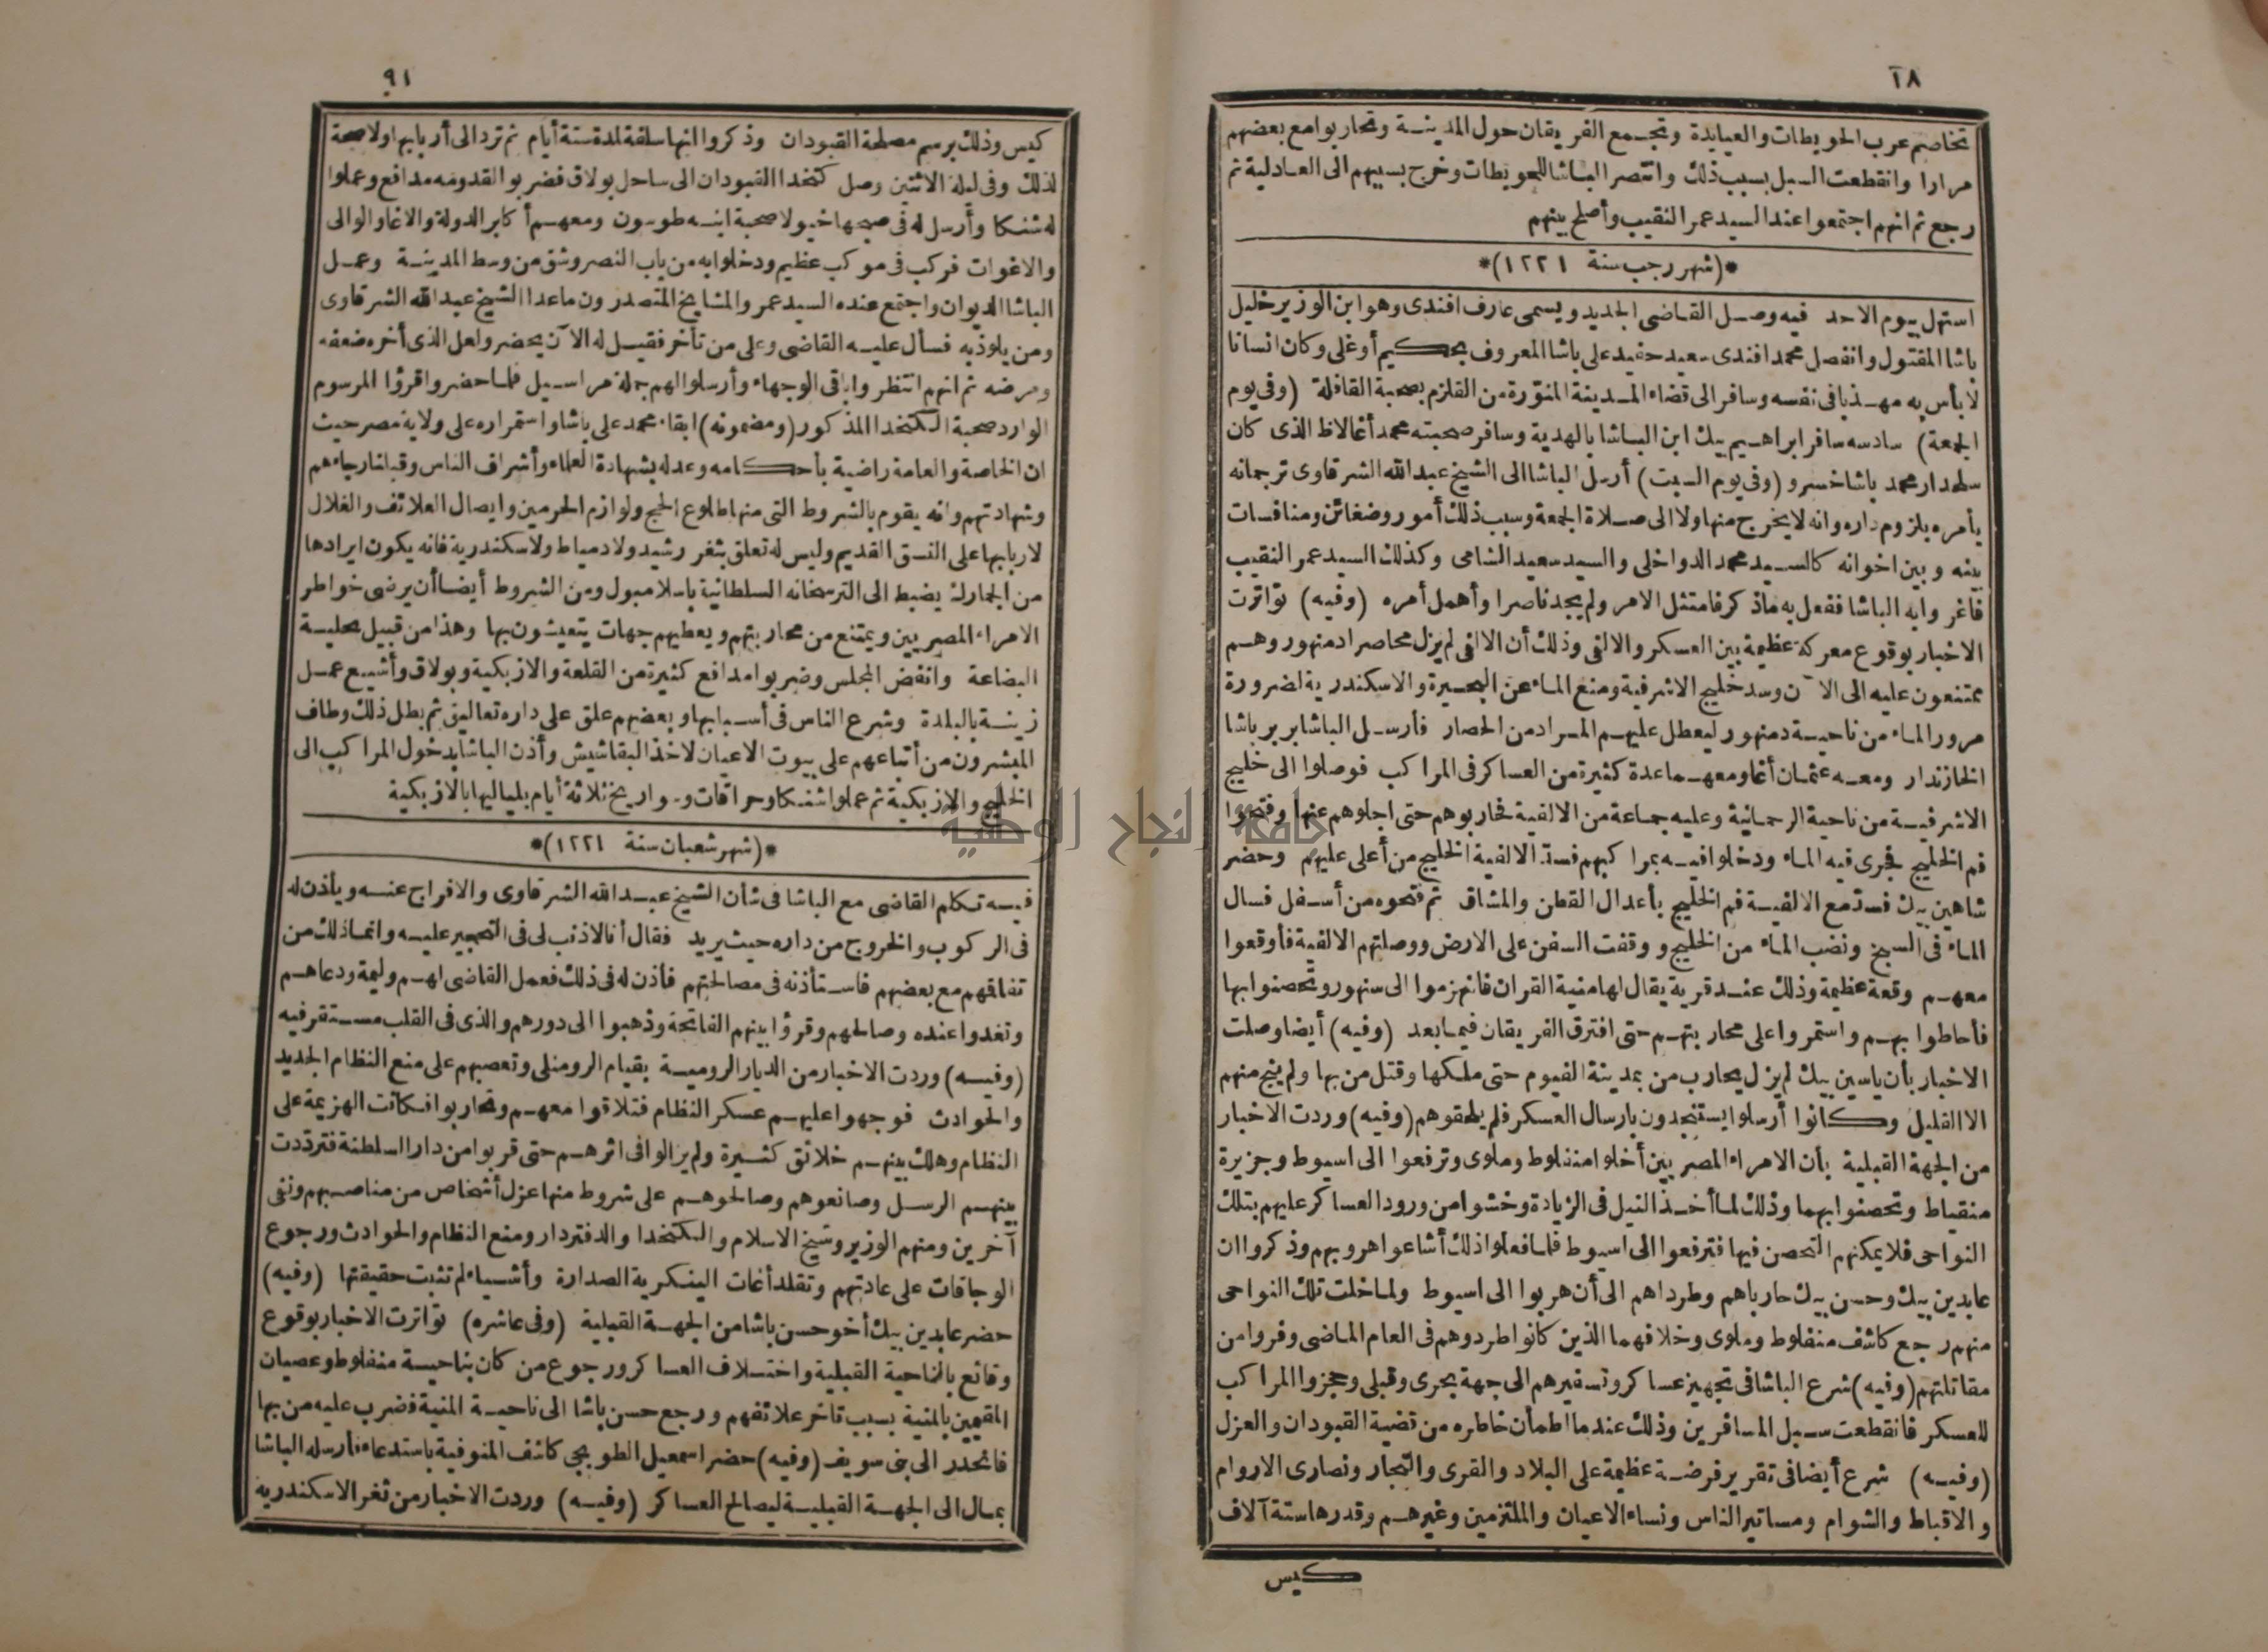 ١٨
تخاصم عرب الحويطات والعيايدة وتجمع الفريقان حول المدينة وتحاربوا مع بعضهم
مرارا وانقطعت السبل بسبب ذلك وانتصر الباشا للحويطات وخرج بسببهم الى العادلية ثم
رجع ثم انهم اجتمعوا عند السيد عمر النقيب وأصلح بينهم
*(شهر رجب سنة ١٢٢١)*
استهل بيوم الاحد فيه وصل القاضى الجديد ويسمى عارف افندى وهو ابن الوزير خليل
باشا المقتول وانفصل محمد افندى سعيد حفيد على باشا المعروف بحكيم أوغلى وكان انسانا
لا بأس به مهذبا فى نفسه وسافر الى قضاء المدينة المنورة من القلزم بصحبة القافلة (وفى يوم
الجمعة) سادسه سافر ابراهيم بيك ابن الباشا بالهدية وسافر صحبته محمد أغا لاظ الذى كان
سلحدار محمد باشا خسرو (وفى يوم السبت) أرسل الباشا الى الشيخ عبد الله الشرقاوى ترجمانه
يأمره بلزوم داره وانه لا يخرج منها ولا الى صلاة الجمعة وسبب ذلك أمور وضغائن ومنافسات
بينه وبين اخوانه كالسيد محمد الدواخلى والسيد سعيد الشامى وكذلك السيد عمر النقيب
فاغروا به الباشا ففعل به ماذكر فامتثل الامر ولم يجد ناصرا وأهمل أمره (وفيه) تواترت
الاخبار بوقوع معركة عظيمة بين العسكر والالفى وذلك أن الالفى لم يزل محاصرا دمنهور وهم
ممتنعون عليه الى الآن وسد خليج الاشرفية ومنع الماء عن البحيرة والاسكندرية لضرورة
مرور الماء من ناحية دمنهور ليعطل عليهم المراد من الحصار فأرسل الباشا بربر باشا
الخازندار ومعه عثمان أغا ومعهما عدة كثيرة من العساكر فى المراكب فوصلوا الى خليج
الاشرفية من ناحية الرحمانية وعليه جماعة من الالفية فحاربوهم حتى اجلوهم عنها وفتحوا
فم الخليج فجرى فيه الماء ودخلوا فيه بمراكبهم فسد الالفية الخليج من أعلى عليهم وحضر
شاهين بيك فسد مع الالفية فم الخليج بأعدال القطن والمشاق ثم فتحوه من أسفل فسال
الماء فى السبخ ونضب الماء من الخليج ووقفت السفن على الارض ووصلتهم الالفية فأوقعوا
معهم وقعة عظيمة وذلك عند قرية يقال لها منية القران فانهزموا الى سنهور وتحصنوا بها
فأحاطوا بهم واستمروا على محاربتهم حتى افترق الفريقان فيما بعد (وفيه) أيضا وصلت
الاخبار بأن ياسين بيك لم يزل يحارب من بمدينة الفيوم حتى ملكها وقتل من بها ولم ينج منهم
الا القليل وكانوا أرسلوا يستنجدون بارسال العسكر فلم يلحقوهم (وفيه) وردت الاخبار
من الجهة القبلية بأن الامراء المصريين أخلوا منفلوط وملوى وترفعوا الى اسيوط وجزيرة
منقباط وتحصنوا بهما وذلك لما أخذ النيل فى الزيادة وخشوا من ورود العساكر عليهم بتلك
النواحى فلا يمكنهم التحصن فيها فترفعوا الى اسيوط فلما فعلوا ذلك أشاعوا هروبهم وذكروا ان
عابدين بيك وحسن بيك حارباهم وطرداهم الى أن هربوا الى اسيوط ولما خلت تلك النواحى
منهم رجع كاشف منفلوط وملوى وخلافهما الذين كانوا طردوهم فى العام الماضى وفروا من
مقاتلتهم (وفيه) شرع الباشا فى تجهيز عساكر وتسفيرهم الى جهة بحرى وقبلى وحجزوا المراكب
للعسكر فانقطعت سبل المسافرين وذلك عندما اطمأن خاطره من قضية القبودان والعزل
(وفيه) شرع أيضا فى تقرير فرضة عظيمة على البلاد والقرى والتجار ونصارى الاروام
والاقباط والشوام ومساتير الناس ونساء الاعيان والملتزمين وغيرهم وقدرها ستة آلاف
كيس
٩١
كيس وذلك برسم مصلحة القبودان وذكروا انها سلفة لمدة ستة أيام ثم ترد الى أربابها ولا صحة
لذلك وفى ليلة الاثنين وصل كتخدا القبودان الى ساحل بولاق فضربوا لقدومه مدافع وعملوا
له شنكا وأرسل له فى صبحها خيولا صحبة ابنه طوسون ومعهم أكابر الدولة والاغا والوالى
والاغوات فركب فى موكب عظيم ودخلوا به من باب النصر وشق من وسط المدينة وعمل
الباشا الديوان واجتمع عنده السيد عمر والمشايخ المتصدرون ماعدا الشيخ عبد الله الشرقاوى
ومن يلوذ به فسأل عليه القاضى وعلى من تأخر فقيل له الآن يحضر ولعل الذى أخره ضعفه
ومرضه ثم انهم انتظروا باقى الوجهاء وأرسلوا لهم جملة مراسيل فلما حضروا قرؤا المرسوم
الوارد صحبة الكتخدا المذكور (ومضمونه) ابقاء محمد على باشا واستمراره على ولاية مصر حيث
ان الخاصة والعامة راضية بأحكامه وعدله بشهادة العلماء وأشراف الناس وقبلنا رجاءهم
وشهادتهم وانه يقوم بالشروط التى منها طلوع الحج ولوازم الحرمين وايصال العلائف والغلال
لاربابها على النسق القديم وليس له تعلق بثغر رشيد ولا دمياط ولا سكندرية فانه يكون ايرادها
من الجمارك يضبط الى الترسخانه السلطانية باسلامبول ومن الشروط أيضا أن يرضى خواطر
الامراء المصريين ويمتنع من محاربتهم ويعطيهم جهات يتعيشون بها وهذا من قبيل تحلية
البضاعة وانفض المجلس وضربوا مدافع كثيرة من القلعة والازبكية وبولاق وأشيع عمل
زينة بالبلدة وشرع الناس فى أسبابها وبعضهم علق على داره تعاليق ثم بطل ذلك وطاف
المبشرون من أتباعهم على بيوت الاعيان لاخذ البقاشيش وأذن الباشا بدخول المراكب الى
الخليج والازبكية ثم عملوا شنكا وحراقات وسواريخ ثلاثة أيام بلياليها بالازبكية
*(شهر شعبان سنة ١٢٢١)*
فيه تكلم القاضى مع الباشا فى شأن الشيخ عبد الله الشرقاوى والافراج عنه ويأذن له
فى الركوب والخروج من داره حيث يريد فقال أنا لا ذنب لى فى التحجير عليه وانما ذلك من
تفاقهم مع بعضهم فاستأذنه فى مصالحتهم فأذن له فى ذلك فعمل القاضى لهم وليمة ودعاهم
وتغدوا عنده وصالحهم وقرؤا بينهم الفاتحة وذهبوا الى دورهم والذى فى القلب مستقر فيه
(وفيه) وردت الاخبار من الديار الرومية بقيام الرومنلى وتعصبهم على منع النظام الجديد
والحوادث فوجهوا عليهم عسكر النظام فتلاقوا معهم وتحاربوا فكانت الهزيمة على
النظام وهلك بينهم خلائق كثيرة ولم يزالوا فى اثرهم حتى قربوا من دار السلطنة فترددت
بينهم الرسل وصانعوهم وصالحوهم على شروط منها عزل أشخاص من مناصبهم ونفى
آخرين ومنهم الوزير وشيخ الاسلام والكتخدا والدفتردار ومنع النظام والحوادث ورجوع
الوجاقات على عادتهم وتقلد أغات الينكرية الصدارة وأشياء لم تثبت حقيقتها (وفيه)
حضر عابدين بيك أخو حسن باشا من الجهة القبلية (وفى عاشره) تواترت الاخبار بوقوع
وقائع بالناحية القبلية واختلاف العساكر ورجوع من كان بناحية منفلوط وعصيان
المقيمين بالمنية بسبب تاخر علائفهم ورجع حسن باشا الى ناحية المنية فضرب عليه من بها
فانحدر الى بنى سويف (وفيه) حضر اسمعيل الطوبجى كاشف المنوفية باستدعاء فأرسله الباشا
بمال الى الجهة القبلية ليصالح العساكر (وفيه) وردت الاخبار من ثغر الاسكندرية
جامعة النجاح الوطنية